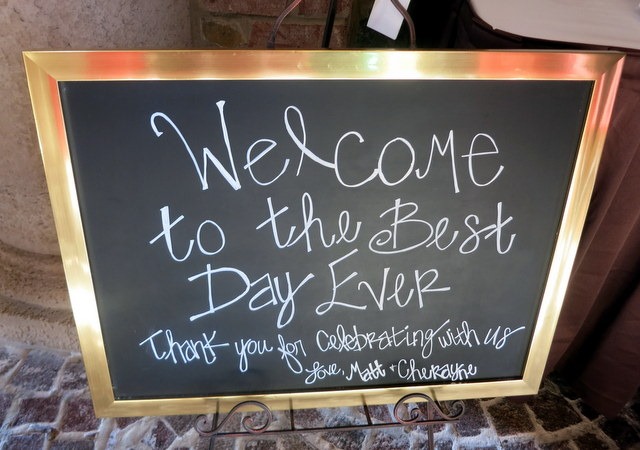 Welcome
to the Best
Day Ever
Thank you for celebrating with us
Love, Matt + Cherayne